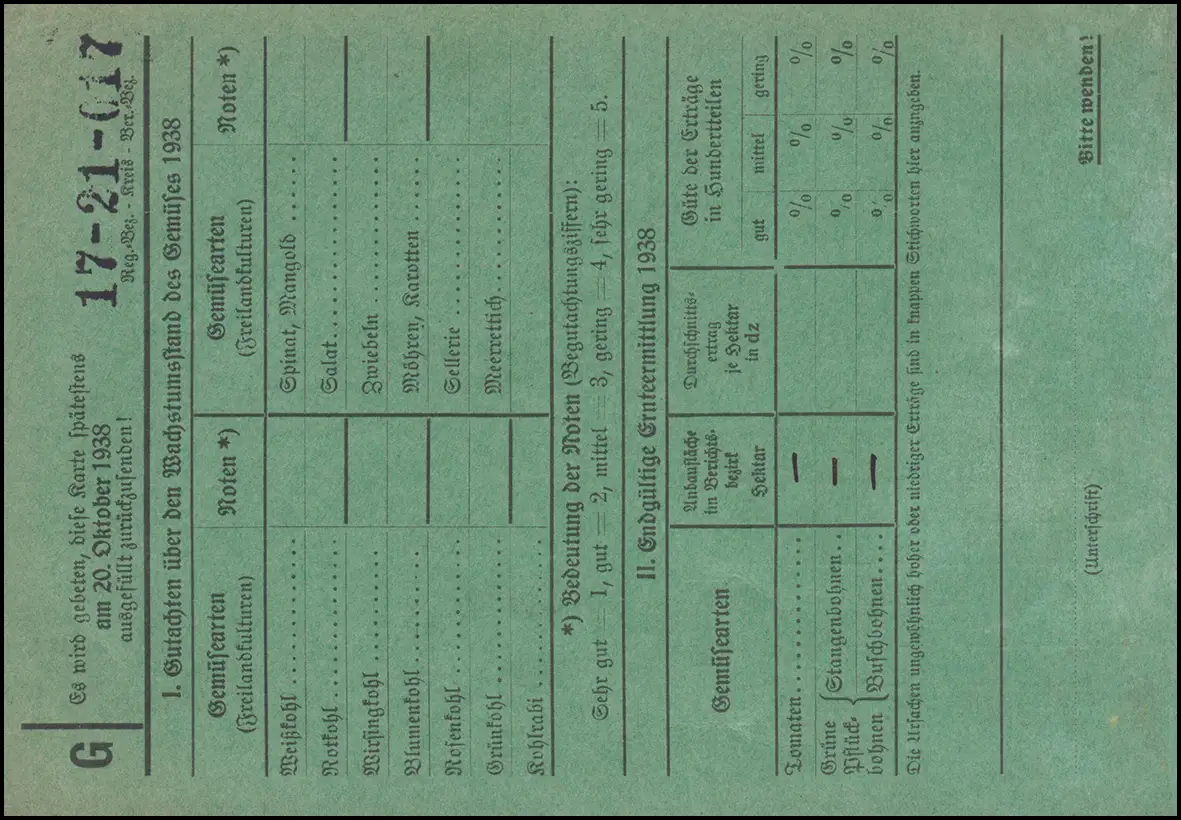 G
Es wird gebeten, diese Karte spätestens
am 20. Oktober 1938
ausgefüllt zurückzusenden!
17-21-
17
Reg.-Bez. - Kreis - Ber.-Bez.
I. Gutachten über den Wachstumsstand des Gemüses 1938
Gemüsearten
(Freilandkulturen)
Noten *)
Gemüsearten
(Freilandkulturen)
Noten *)
Weißkohl ............
Spinat, Mangold ......
Rotkohl ............
Salat ............
Wirsingkohl ............
Zwiebeln ............
Blumenkohl ............
Möhren, Karotten ......
Rosenkohl ............
Sellerie ............
Grünkohl ............
Meerrettich ............
Kohlrabi ............
*) Bedeutung der Noten (Begutachtungsziffern):
Sehr gut = 1, gut = 2, mittel = 3, gering = 4, sehr gering = 5.
II. Endgültige Ernteermittlung 1938
Gemüsearten
Anbaufläche
im Berichts-
bezirk
Hektar
Durchschnitts-
ertrag
je Hektar
in dz
Güte der Erträge
in Hundertteilen
gut
mittel
gering
Tomaten ............ — % % %
Grüne Pflück-bohnen { Stangenbohnen .. — % % %
Buschbohnen .... — % % %
Die Ursachen ungewöhnlich hoher oder niedriger Erträge sind in knappen Stichworten hier anzugeben.
(Unterschrift)
Bitte wenden!